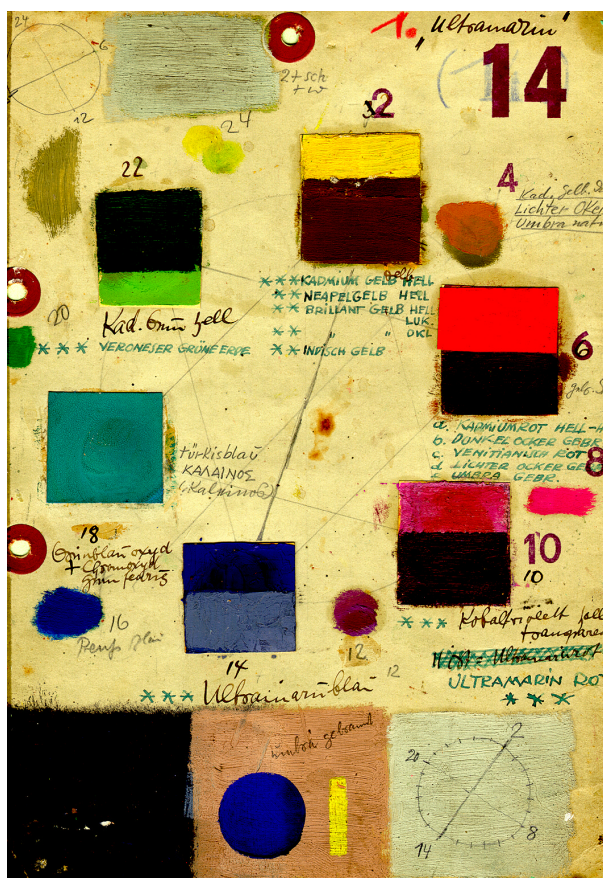 24
6
12
1. "Ultramarin"
14
2+sch
+w
2
24
22
4
Kad. gelb.
Lichter Oker
Umbra natur
Kad. Grün hell
* * * VERONESER GRÜNE ERDE
20
* * * KADMIUM GELB HELL
* * NEAPELGELB HELL
* * BRILLANT GELB HELL
LUK.
* * " " DKL
* * INDISCH GELB
6
a. KADMIUMROT HELL-
b. DUNKELOCKER GEBR.
c. VENITIANISCH ROT
d LICHTER OCKER GEB
UMBRA GEBR.
8
türkisblau
ΚΑΛΑΙΝΟΣ
(Kalainos)
18
Grünblauoxyd
+ Chromoxyd
grün feurig
10
10
16
12
12
* * * Kobaltviolett hell
ULTRAMARIN ROT
* * *
14
* * * Ultramarinblau
umbra gebrannt
2
20
8
14